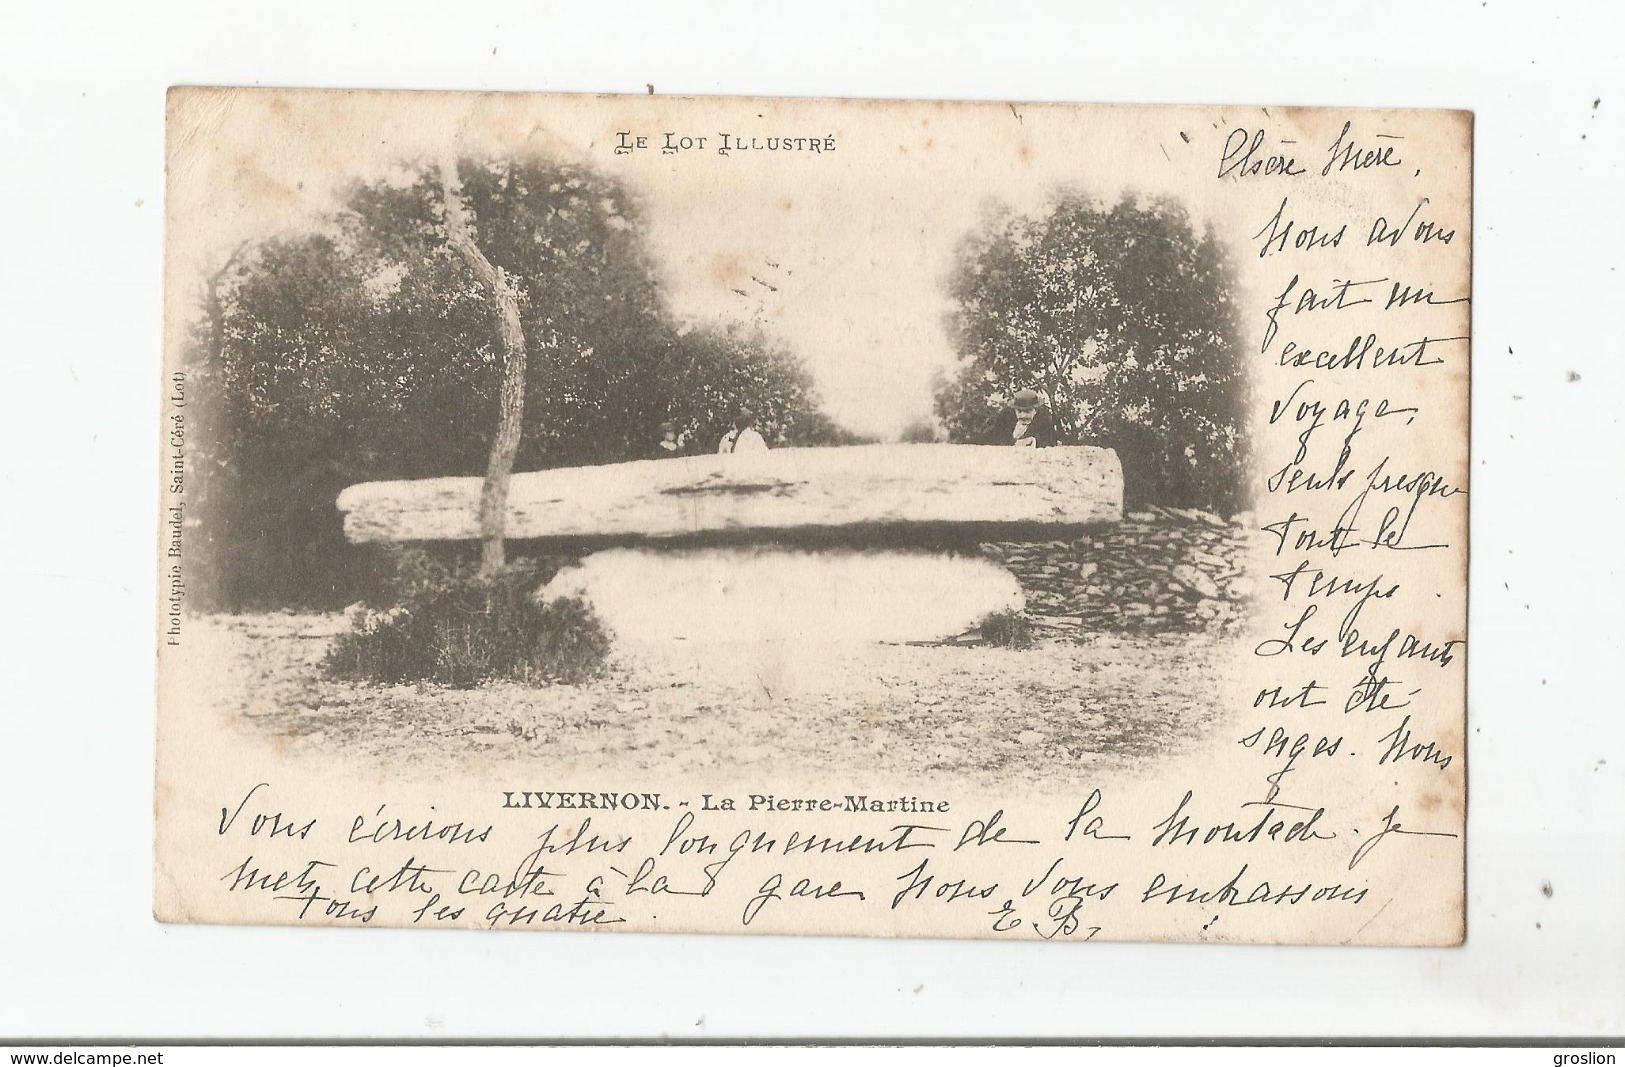 LE LOT ILLUSTRÉ
Chère Mère,
Nous avons
fait un
excellent
voyage,
seuls presque
tout le
temps.
Les enfants
ont été
sages. Nous
Phototypie Baudel, Saint-Céré (Lot)
LIVERNON. - La Pierre-Martine
vous écrirons plus longuement de la Montade. je
mets cette carte à la gare. Nous vous embrassons
tous les quatre.
E. B,
www.delcampe.net
groslion